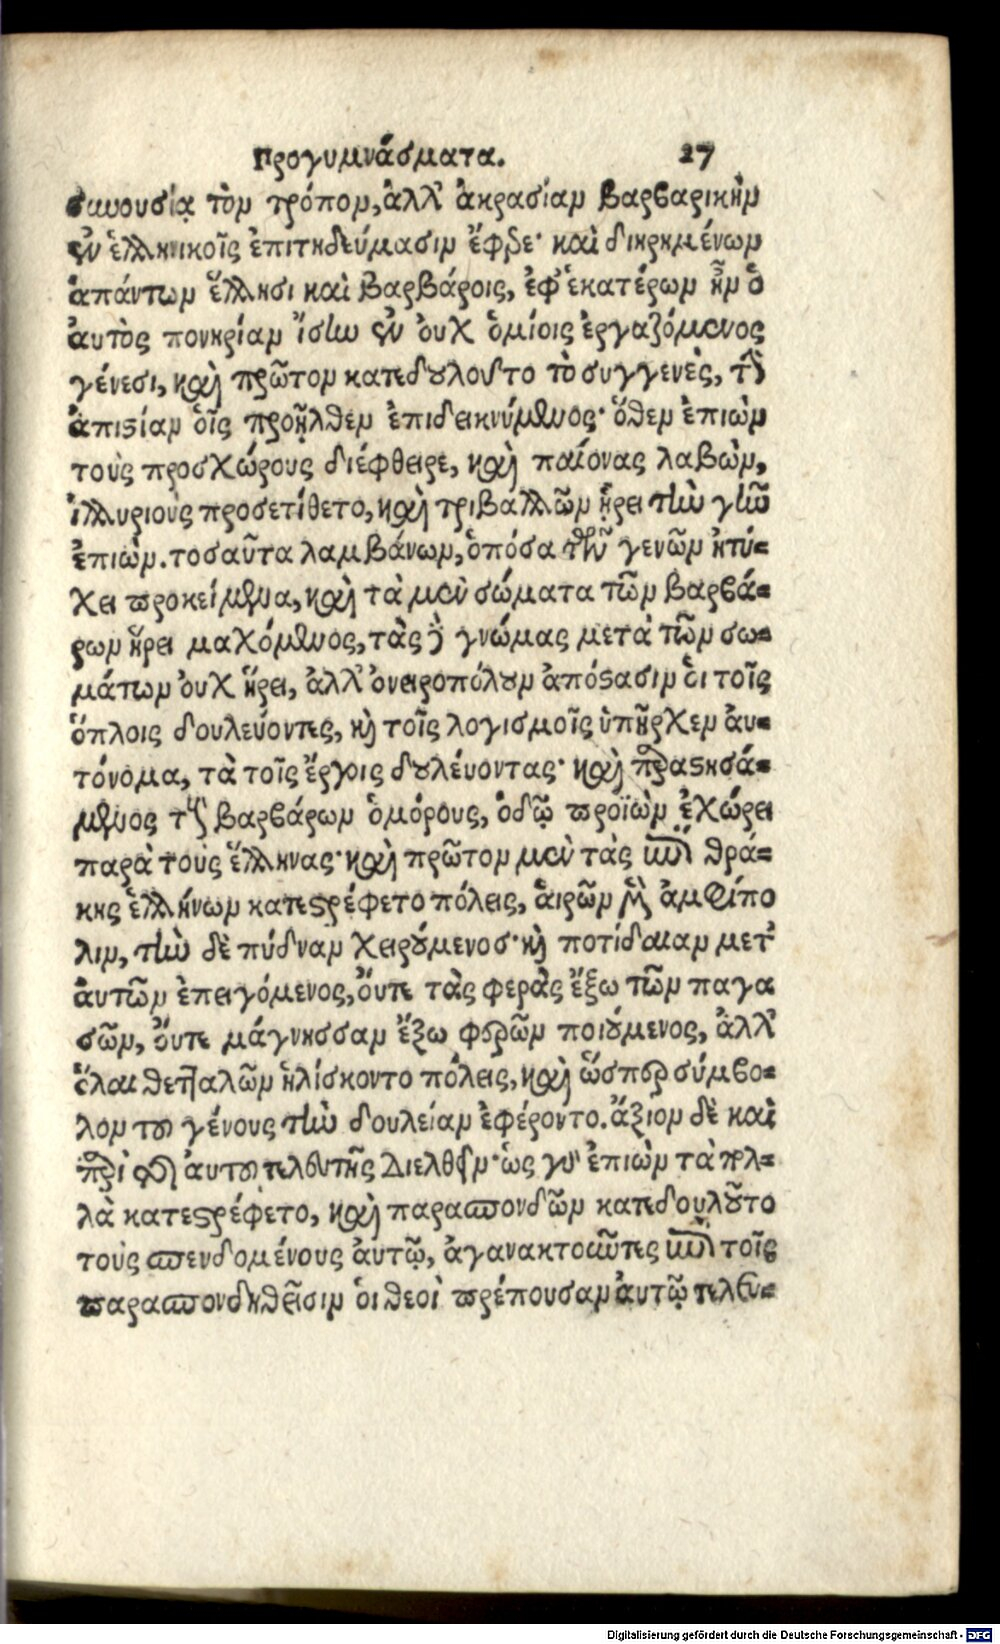 προγυμνάσματα. 27
συνουσίᾳ τὸν τρόπον, ἀλλ' ἀκρασίαν βαρβαρικὴν
ἐν ἑλληνικοῖς ἐπιτηδεύμασιν ἔφθε· καὶ διῃρημένων
ἁπάντων ἕλλησι καὶ βαρβάροις, ἐφ' ἑκατέρων ἦν ὁ
ἀυτὸς πονηρίαν ἴσην ἐν ὀυχ ὁμοίοις ἐργαζόμενος
γένεσι, καὶ πρῶτον κατεδουλοῦτο τὸ συγγενὲς, τὴν
ἀπιστίαν οἷς προῆλθεν ἐπιδεικνύμενος· ὅθεν ἐπιὼν
τοὺς προσχώρους διέφθειρε, καὶ παίονας λαβὼν,
ἰλλυριοὺς προσετίθετο, καὶ τριβαλλῶν ᾕρει τὴν γῆν
ἐπιών. τοσαῦτα λαμβάνων, ὁπόσα τῶν γενῶν ἠτύ-
χει προκείμενα, καὶ τὰ μὲν σώματα τῶν βαρβά-
ρων ᾕρει μαχόμενος, τὰς δὲ γνώμας μετὰ τῶν σω-
μάτων ὀυχ ᾕρει, ἀλλ' ὀνειροπόλουν ἀπόστασιν ὁι τοῖς
ὅπλοις δουλεύοντες, καὶ τοῖς λογισμοῖς ὑπῆρχεν ἀυ-
τόνομα, τὰ τοῖς ἔργοις δουλέυοντας· καὶ παραστησά-
μενος τοὺς βαρβάρων ὁμόρους, ὁδῷ προϊὼν ἐχώρει
παρὰ τοὺς ἕλληνας· καὶ πρῶτον μὲν τὰς ὑπὸ θρά-
κης ἑλλήνων κατεστρέφετο πόλεις, ἁιρῶν μὲν ἀμφίπο
λιν, τὴν δὲ πύδναν χειρούμενος· καὶ ποτίδαιαν μετ'
ἀυτῶν ἐπειγόμενος, ὄυτε τὰς φερὰς ἔξω τῶν παγα
σῶν, ὄυτε μάγνησσαν ἔξω φερῶν ποιούμενος, ἀλλ'
ὅλαι θετταλῶν ἡλίσκοντο πόλεις, καὶ ὥσπερ σύμβο-
λον τοῦ γένους τὴν δουλείαν ἐφέροντο. ἄξιον δὲ καὶ
περὶ τῆς ἀυτοῦ τελευτῆς διελθεῖν· ὡς γὰρ ἐπιὼν τὰ πολ-
λὰ κατεστρέφετο, καὶ παρασπονδῶν κατεδουλοῦτο
τοὺς σπενδομένους ἀυτῷ, ἀγανακτοῦντες ὑπὲρ τοῖς
παρασπονδηθεῖσιν ὁι θεοὶ πρέπουσαν ἀυτῷ τελευ-
Digitalisierung gefördert durch die Deutsche Forschungsgemeinschaft - DFG